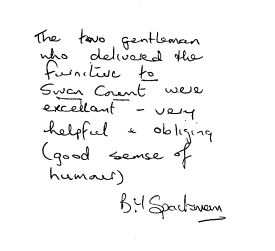 The two gentleman
who delivered the
furniture to
Swan Court were
excellant - very
helpful & obliging
(good sense of
humour)
B.Y Spackman